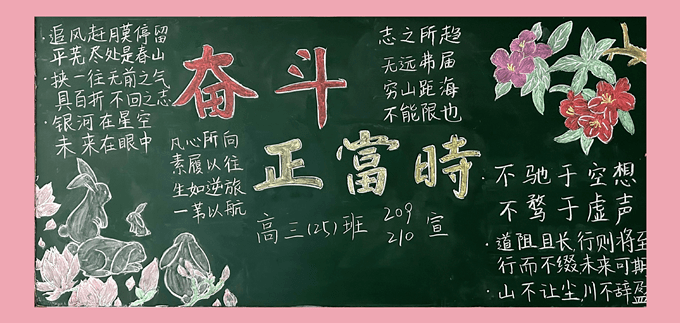 ·追风赶月莫停留
平芜尽处是春山
·挟一往无前之气
具百折不回之志
·银河在星空
未来在眼中
奋斗
正當時
志之所趋
无远弗届
穷山距海
不能限也
凡心所向
素履以往
生如逆旅
一苇以航
高三(25)班 209 210 宣
·不驰于空想
不骛于虚声
·道阻且长,行则将至
行而不缀未来可期
·山不让尘,川不辞盈